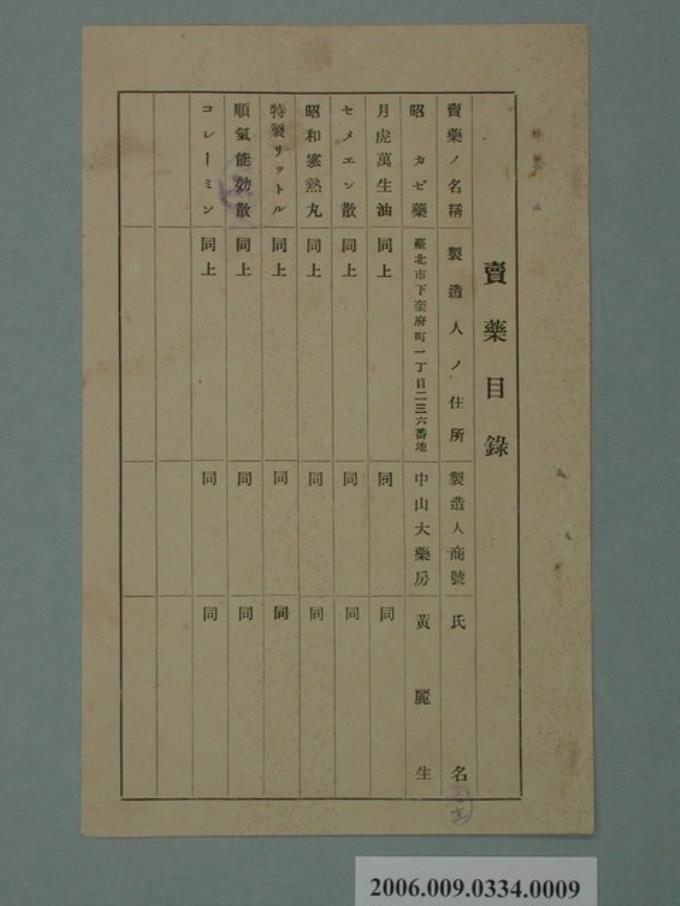 賣藥目錄
賣藥ノ名稱 製造人ノ住所 製造人商號 氏名
昭カゼ藥 臺北市下奎府町一丁目二三六番地 中山大藥房 黃麗生
月虎萬生油 同上 同 同
セメエン散 同上 同 同
昭和寒熱丸 同上 同 同
特製リットル 同上 同 同
順氣能効散 同上 同 同
コレーミン 同上 同 同
2006.009.0334.0009